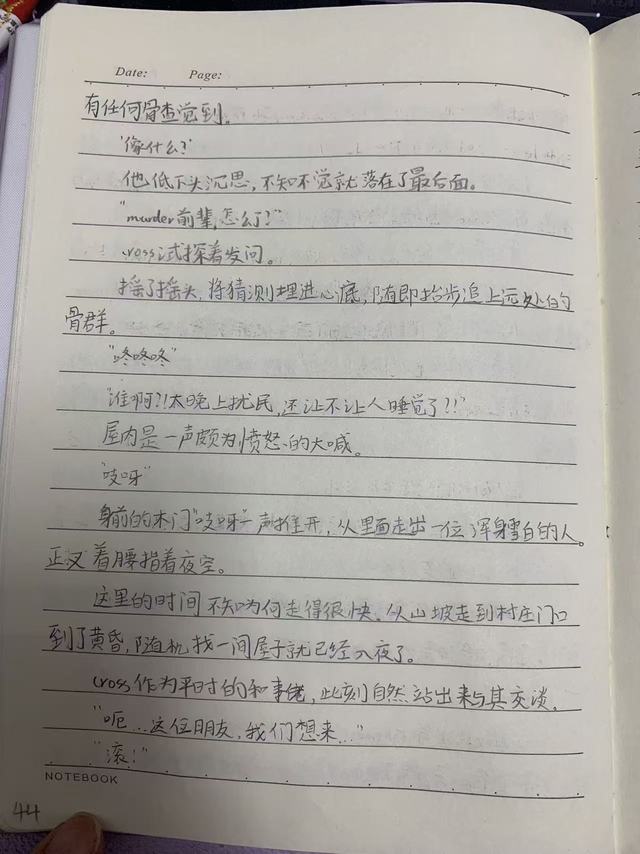 Date: Page:
有任何骨查觉到。
"像什么?"
他低下头沉思,不知不觉就落在了最后面。
"murder前辈,怎么了?"
cross试探着发问。
摇了摇头,将猜测埋进心底,随即抬步追上远处的
骨群。
"咚咚咚"
"谁啊?!大晚上扰民,还让不让人睡觉了?!"
屋内是一声颇为愤怒的大喊。
"吱呀"
身前的木门"吱呀"一声推开,从里面走出一位浑身雪白的人。
正叉着腰指着夜空。
这里的时间不知为何走得很快,从山坡走到村庄门口
到了黄昏,随机找一间屋子就已经入夜了。
cross作为平时的和事佬,此刻自然站出来与其交谈。
"呃...这位朋友,我们想来..."
"滚!"
NOTEBOOK
44